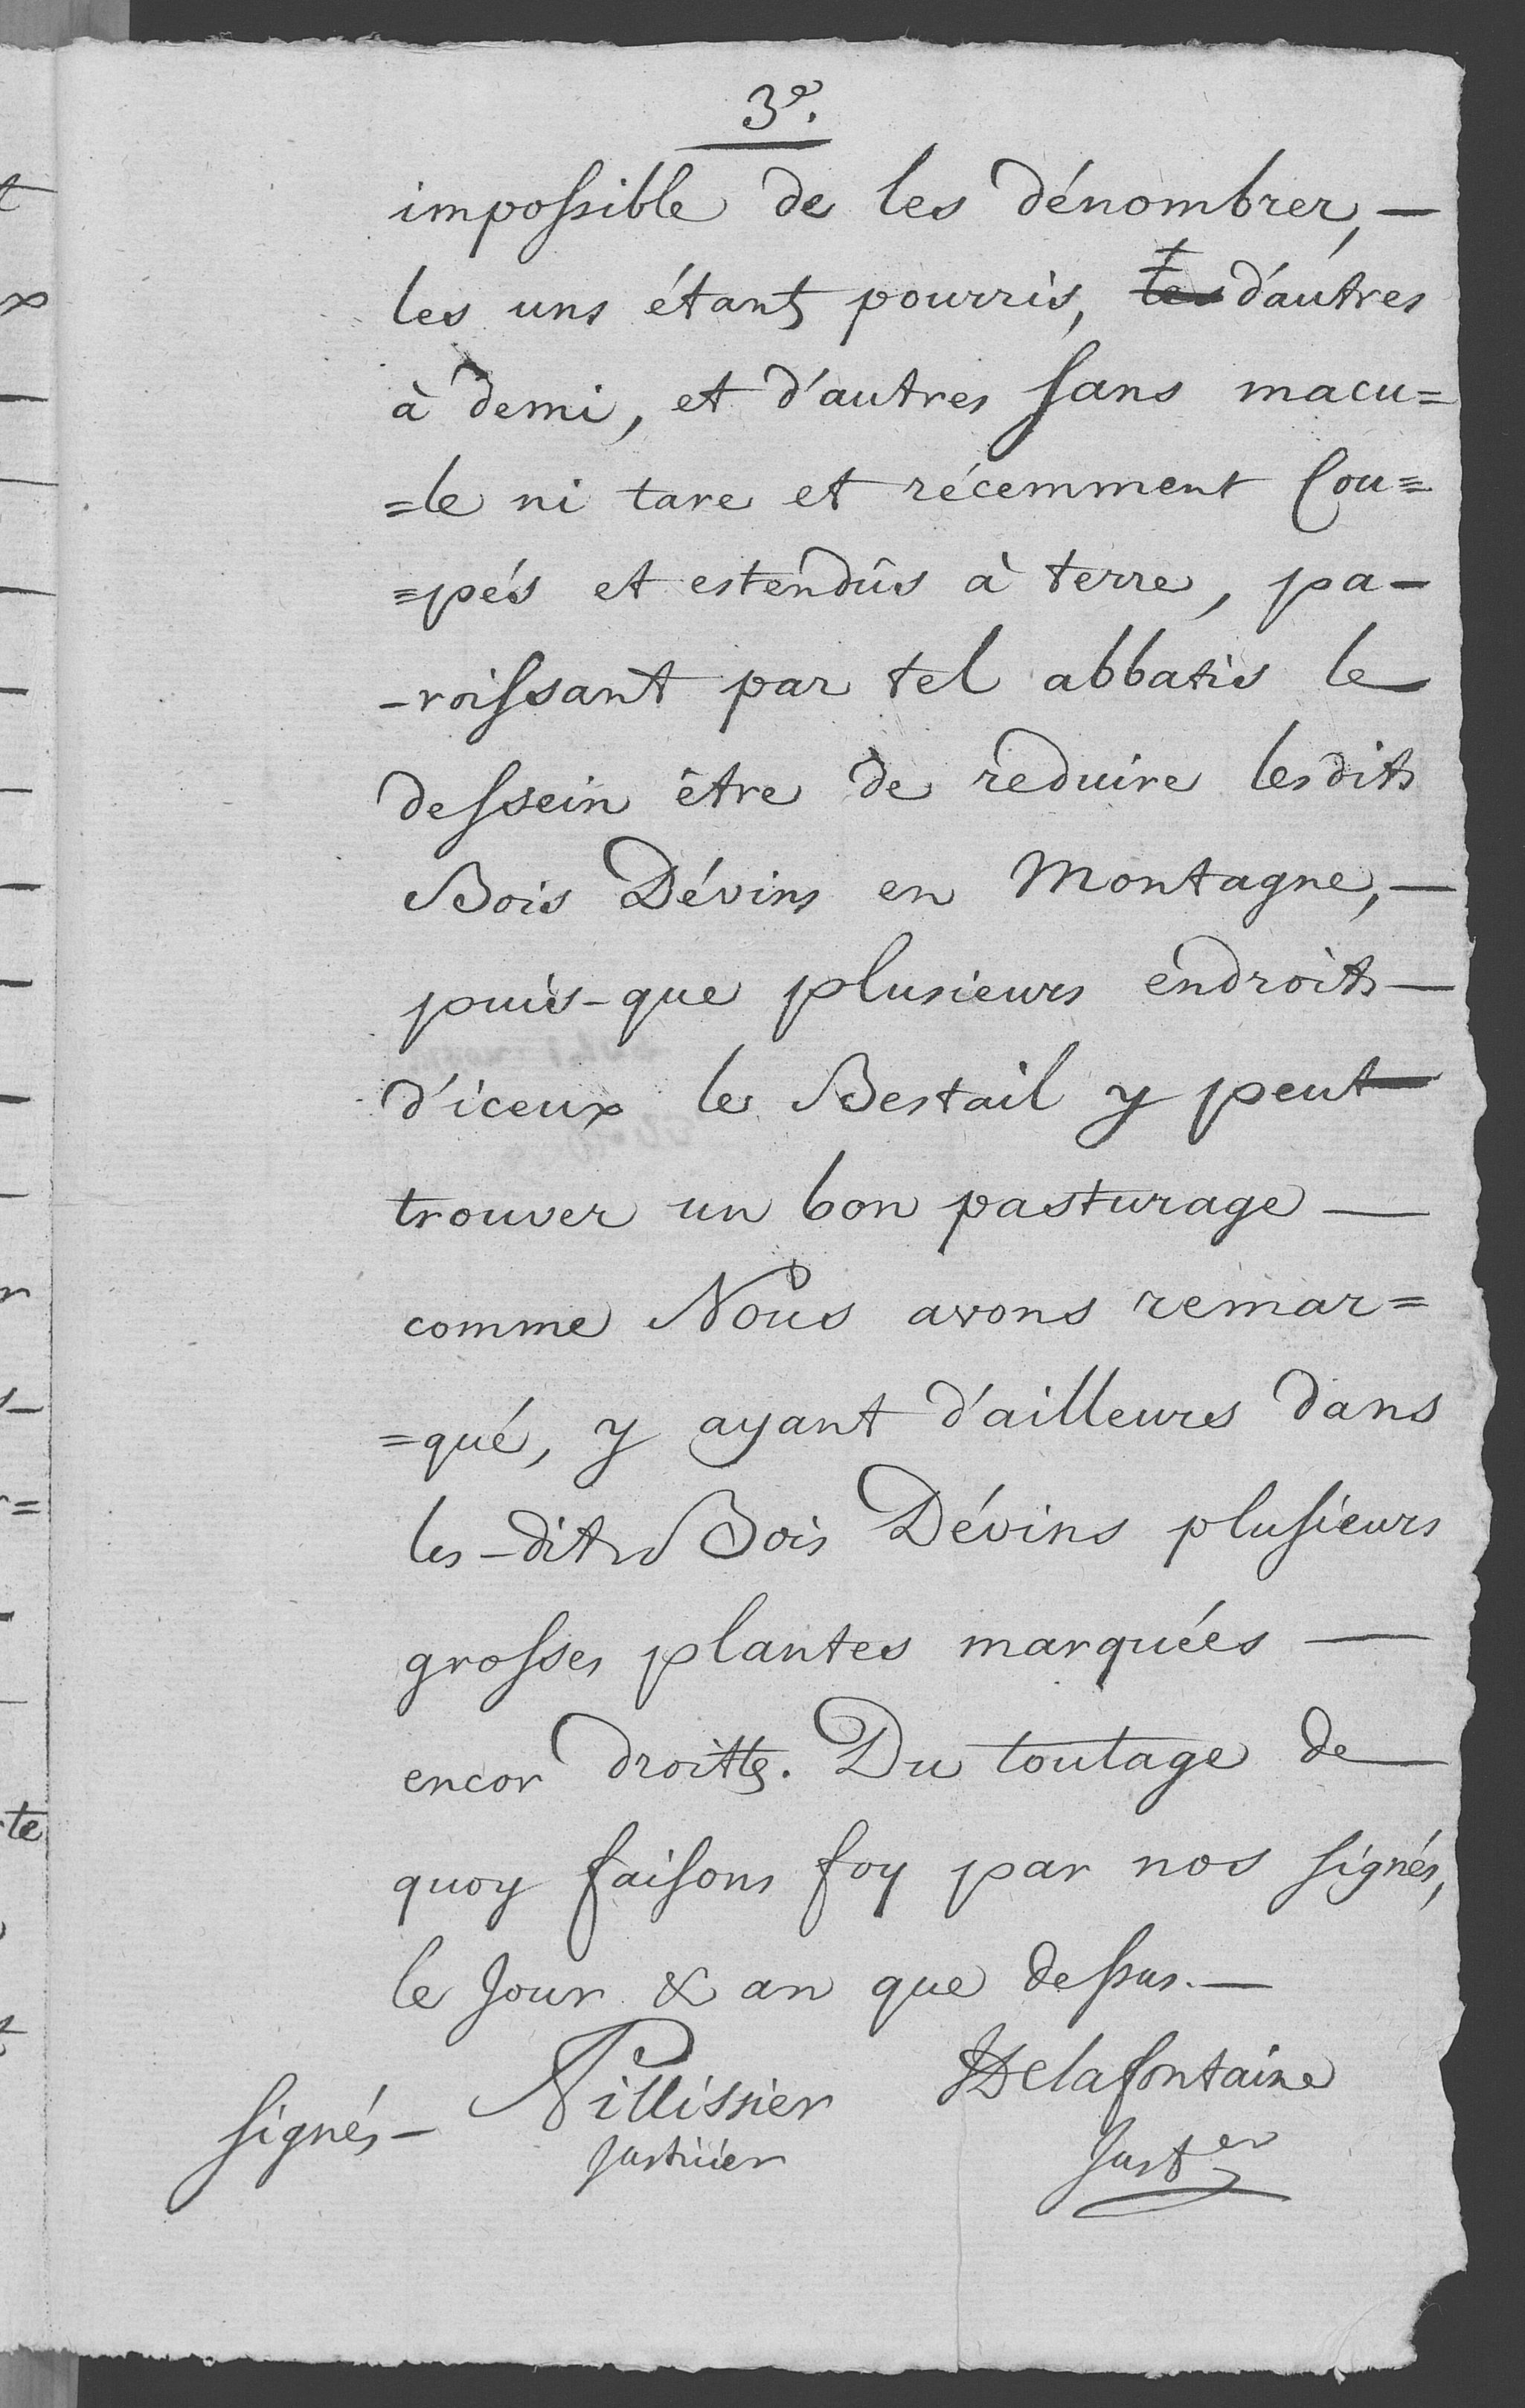 3e.
impossible de les dénombrer, —
les uns étants pourris, les d'autres
à demi, et d'autres sans macu=
=le ni tare et récemment Cou=
=pés et estendûs à terre, pa-
-roissant par tel abbatis le
dessein être de reduire lesdits
Bois Dévins en Montagne, —
puis-que plusieurs endroits —
d'iceux le Bestail y peut
trouver un bon pasturage —
comme Nous avons remar=
=qué, y ayant d'ailleurs dans
les-dits Bois Dévins plusieurs
grosses plantes marquées —
encor droittes. Du toutage de
quoy faisons foy par nos signés,
le Jour & an que dessus. —
signés - Pillissier Delafontaine
Justicier Juster